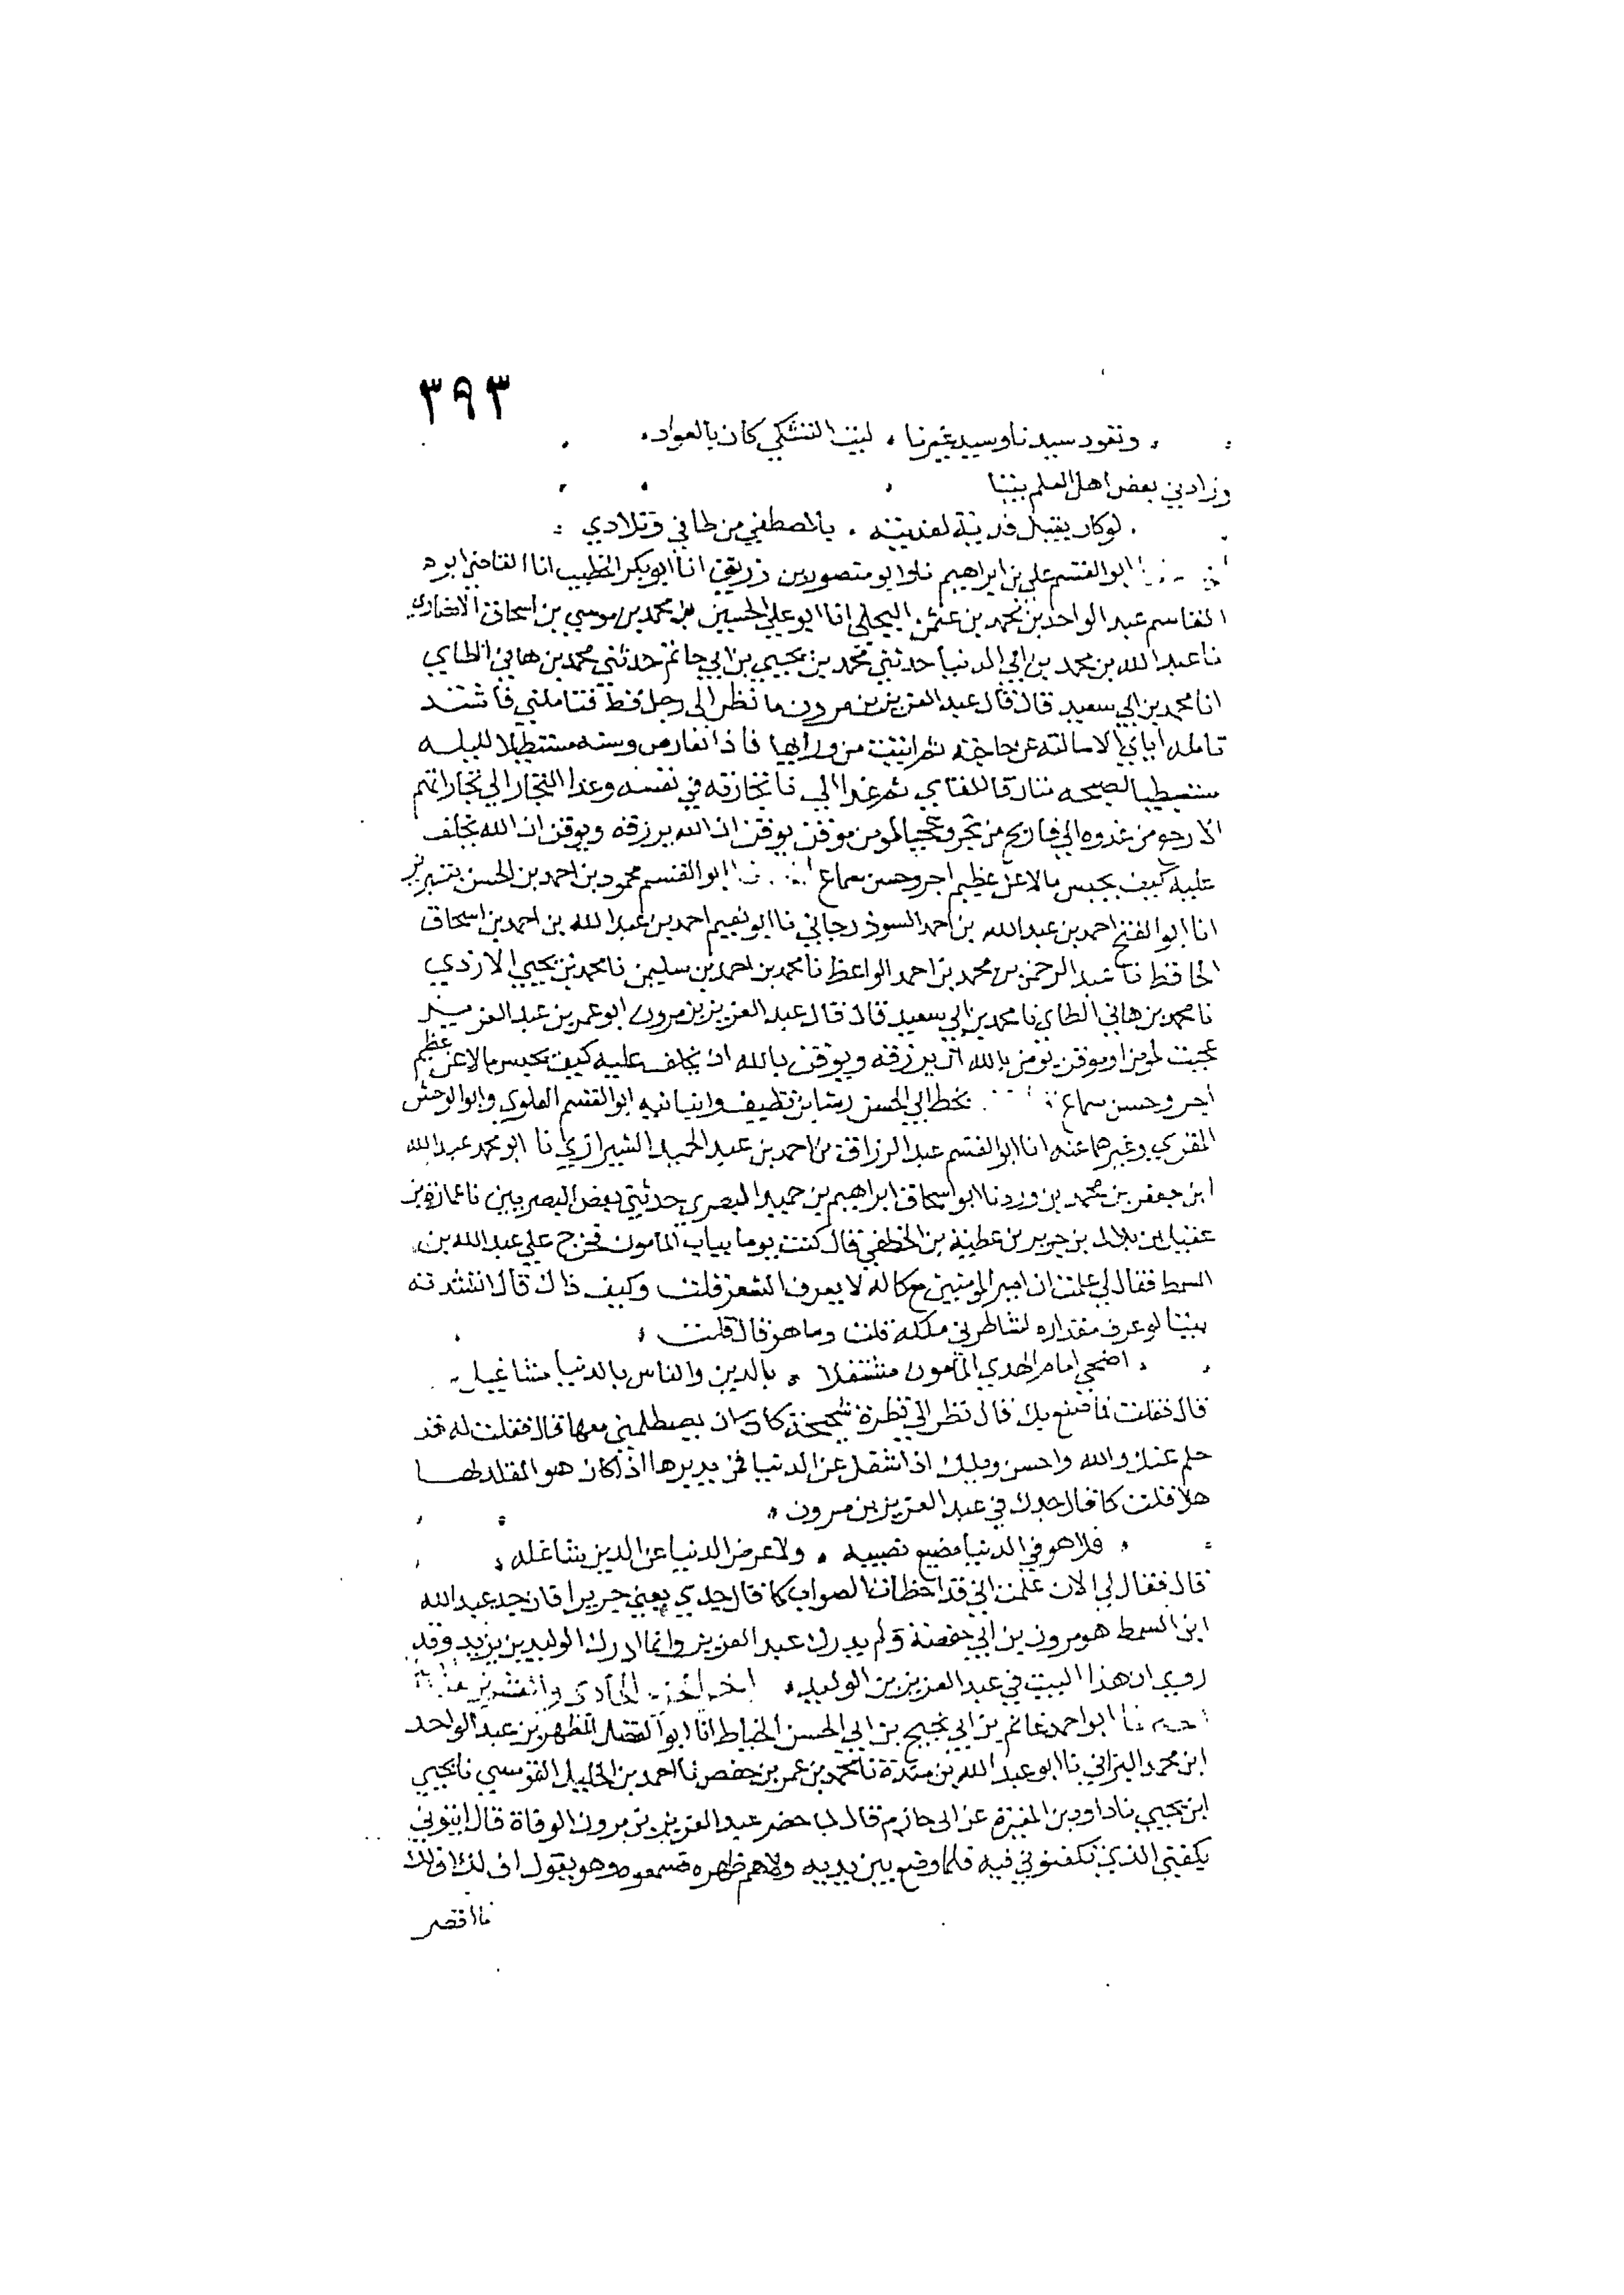 ٣٩٣
ونعود سيدنا وسيد غيرنا . ليت التشكي كان بالعواد .
وزادني بعض اهل العلم بيتا
لو كان يقبل فدية لفديته . بالمصطفى من طارفي وتلادي :
ابو القسم علي بن ابراهيم نا وابو منصور بن زريق انا ابو بكر الخطيب انا القاضي ابو
القاسم عبد الواحد بن محمد بن عثمن البجلي انا ابو علي الحسين بن محمد بن موسى بن اسحاق الانصاري
نا عبد الله بن محمد بن ابي الدنيا حدثني محمد بن يحيى بن ابي حاتم حدثني محمد بن هاني الطاي
انا محمد بن ابي سعيد قال قال عبد العزيز بن مرون ما نظر الي رجل قط فتاملني فاشتد
تامله اياي الا سالته عن حاجته ثم اتيت من ورايها فاذا تعار من وسنه مستطيلا لليله
مستبطيا لصبحه متارقا للقاي ثم غدا الي انا تجارته في نفسه وغدا التجار الي تجاراتهم
الا رجع من غدوه الي فاربح من تجر وعجبا لمومن موقن يوقن ان الله يرزقه ويوقن ان الله يخلف
عليه كيف يحبس مالا عن عظيم اجر وحسن سماع ابو القسم محمود بن احمد بن الحسن بتبريز
انا ابو الفتح احمد بن عبد الله بن احمد السوذرجاني نا ابو نعيم احمد بن عبد الله بن احمد بن اسحاق
الحافظ نا عبد الرحمن بن محمد بن احمد الواعظ نا محمد بن احمد بن سليمن نا محمد بن يحيى الازدي
نا محمد بن هاني الطاي نا محمد بن ابي سعيد قال قال عبد العزيز بن مرون ابو عمر بن عبد العزيز
عجبت لمومن وموقن يومن بالله ان يرزقه ويوقن بالله ان يخلف عليه كيف يحبس مالا عن عظيم
اجر وحسن سماع بخط ابي الحسن رشا بن نظيف وانبانيه ابو القسم العلوي وابو الوحش
المقري وغيرهما عنه انا ابو القسم عبد الرزاق بن احمد بن عبد الحميد الشيرازي نا ابو محمد عبد الله
ابن جعفر بن محمد بن ورد نا ابو اسحاق ابراهيم بن حميد البصري حدثني بعض البصريين نا عمارة بن
عقيل بن بلال بن جرير بن عطية بن الخطفي قال كنت يوما بباب المامون فخرج علي عبد الله بن
السمط فقال لي علمت ان امير المومنين مع كماله لا يعرف الشعر قلت وكيف ذاك قال انشدته
بيتا لو عرف مقداره لشاطرني ملكه قلت وما هو قال قلت
اضحى امام الهدى المامون مشتغلا . بالدين والناس بالدنيا مشاغيل
قال فقلت فما صنع بك قال نظر الي نظرة كاد ان يصطلمني معها قال فقلت له قد
حلم عنك والله واحسن ويلك اذا شغل عن الدنيا فمن يدبرها اذا كان هو المقلد لها
هلا قلت كما قال جدك في عبد العزيز بن مرون .
فلا هو في الدنيا مضيع نصيبه . ولا عرض الدنيا عن الدين شاغله
قال فقال لي الان علمت اني قد اخطات الصواب كما قال جدي يعني جريرا قال جد عبد الله
ابن السمط هو مرون بن ابي حفصة ولم يدرك عبد العزيز وانما ادرك الوليد بن يزيد وقد
روي ان هذا البيت في عبد العزيز بن الوليد . اخر الجزء الحادي والعشرين
ابو احمد غانم بن ابي نجيح بن ابي الحسن الخياط انا ابو الفضل المطهر بن عبد الواحد
ابن محمد البزاني نا ابو عبد الله بن مندة نا محمد بن عمر بن حفص نا احمد بن الخليل القومسي نا يحيى
ابن يحيى نا داود بن المغيرة عن ابي حازم قال لما حضر عبد العزيز بن مرون الوفاة قال ايتوني
بكفني الذي تكفنوني فيه فلما وضع بين يديه ولاهم ظهره فسمعوه وهو يقول اف لك اف لك
ما اقصر